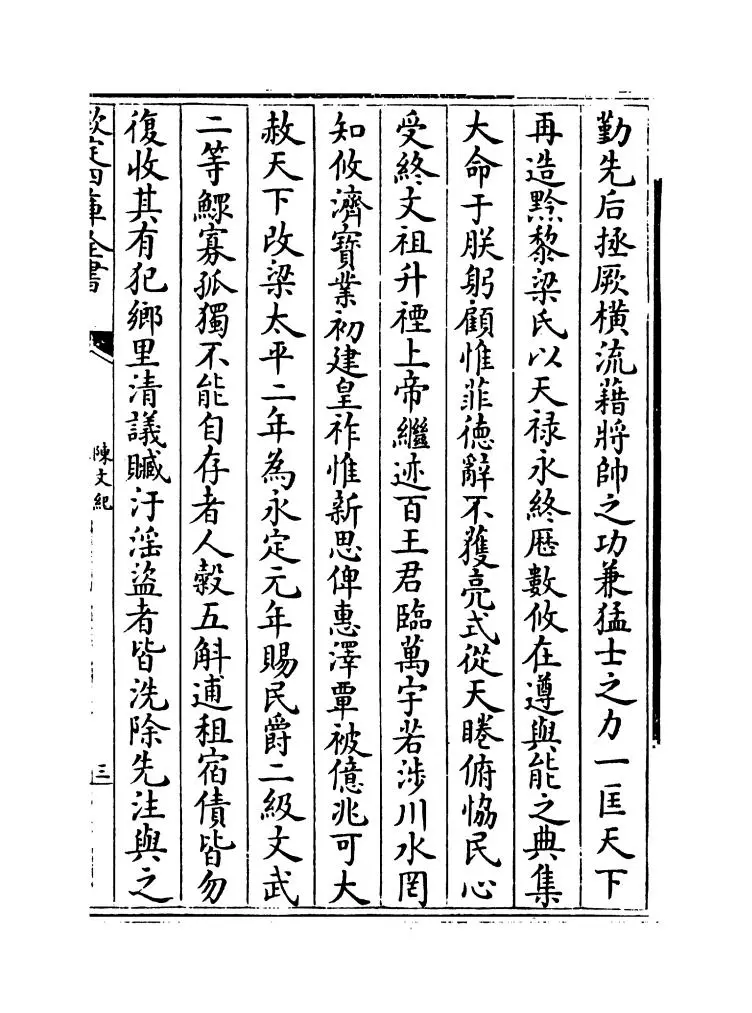 勤先后拯厥橫流藉將帥之功兼猛士之力一匡天下
再造黔黎梁氏以天禄永終厯數攸在遵與能之典集
大命于朕躬顧惟菲德辭不獲亮式從天睠俯恊民心
受終文祖升禋上帝繼迹百王君臨萬宇若涉川水罔
知攸濟寶業初建皇祚惟新思俾惠澤覃被億兆可大
赦天下改梁太平二年為永定元年賜民爵二級文武
二等鰥寡孤獨不能自存者人糓五斛逋租宿債皆勿
復收其有犯鄉里清議贓汙淫盜者皆洗除先注與之
欽定四庫全書
陳文紀
三